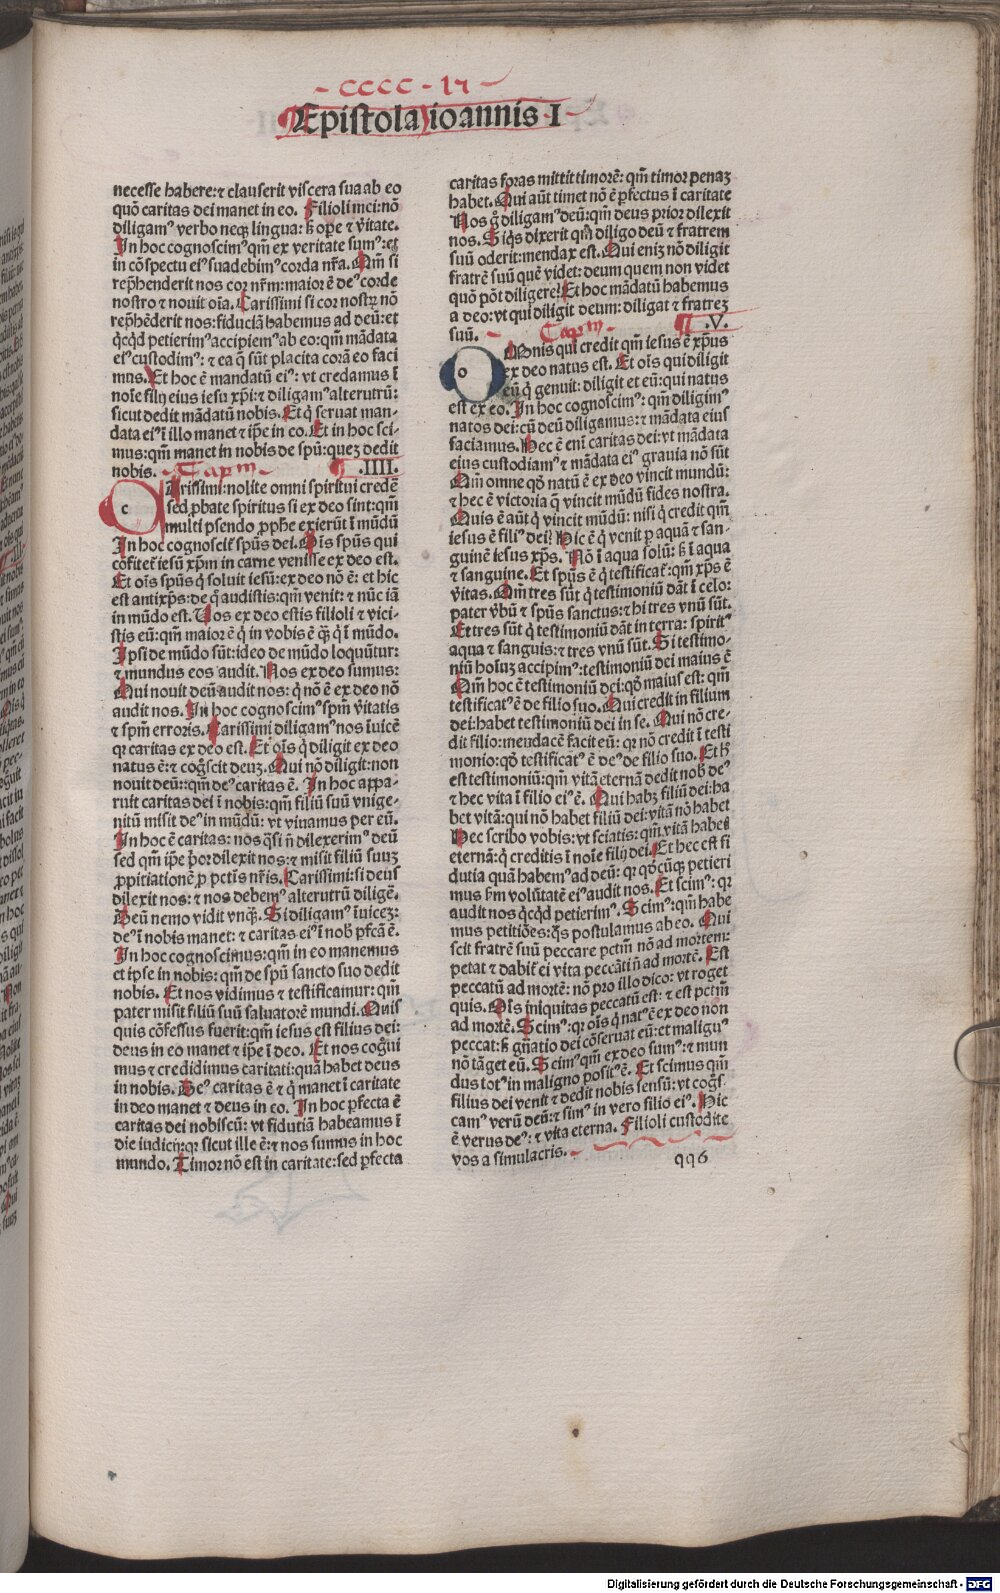 - CCCC - 17 -
Epistola ioannis I
necesse habere: ⁊ clauserit viscera sua ab eo
quō caritas dei manet in eo. Filioli mei: nō
diligamꝰ verbo neqꝫ lingua: sꝫ oꝑe ⁊ v̄itate.
In hoc cognoscimꝰ qm̄ ex veritate sumꝰ: et
in cōspectu eiꝰ suadebimꝰ corda nr̄a. Qm̄ si
rep̄henderit nos cor nr̄m: maior ē deꝰ corde
nostro ⁊ nouit oīa. Carissimi si cor nostrꝫ nō
rep̄hēderit nos: fiduciā habemus ad deū: et
qͥcqͥd petierimꝰ accipiemꝰ ab eo: qm̄ mādata
eiꝰ custodimꝰ: ⁊ ea q̄ sūt placita corā eo faci
mus. Et hoc ē mandatū eiꝰ: vt credamus ī
noīe filij eius iesu xp̄i: ⁊ diligamꝰ alterutrū:
sicut dedit mādatū nobis. Et qͥ seruat man-
data eiꝰ ī illo manet ⁊ ip̄e in eo. Et in hoc sci-
mus: qm̄ manet in nobis de spū: quez dedit
nobis. Capm .IIII.
cArissimi: nolite omni spiritui credē
sed ꝓbate spiritus si ex deo sint: qm̄
multi pseudo ꝓphe exierūt ī mūdū
In hoc cognoscit̄ spūs dei. Oīs spūs qui
cōfitet̄ iesū xp̄m in carne venisse ex deo est.
Et oīs spūs qͥ soluit iesū: ex deo nō ē: et hic
est antixp̄s: de qͦ audistis: qm̄ venit: ⁊ nūc iā
in mūdo est. Uos ex deo estis filioli ⁊ vici-
stis eū: qm̄ maior ē qͥ in vobis ē qꝫ qͥ ī mūdo.
Ipsi de mūdo sūt: ideo de mūdo loquūtur:
⁊ mundus eos audit. Nos ex deo sumus:
Qui nouit deū audit nos: qͥ nō ē ex deo nō
audit nos. In hoc cognoscimꝰ spm̄ v̄itatis
⁊ spm̄ erroris. Carissimi diligamꝰ nos īuicē
qꝛ caritas ex deo est. Et oīs qͥ diligit ex deo
natus ē: ⁊ cogͦscit deuꝫ. Qui nō diligit: non
nouit deū: qm̄ deꝰ caritas ē. In hoc appa-
ruit caritas dei ī nobis: qm̄ filiū suū vnige-
nitū misit deꝰ in mūdū: vt viuamus per eū.
In hoc ē caritas: nos qͣsi n̄ dilexerimꝰ deū
sed qm̄ ip̄e p̄or dilexit nos: ⁊ misit filiū suuꝫ
ꝓpitiationē ꝓ pctīs nr̄is. Carissimi: si deus
dilexit nos: ⁊ nos debemꝰ alterutrū diligē.
Deū nemo vidit vnqꝫ. Si diligamꝰ īuiceꝫ:
deꝰ ī nobis manet: ⁊ caritas eiꝰ ī nob̄ ꝑfcā ē.
In hoc cognoscimus: qm̄ in eo manemus
et ipse in nobis: qm̄ de spū sancto suo dedit
nobis. Et nos vidimus ⁊ testificamur: qm̄
pater misit filiū suū saluatorē mundi. Quis
quis cōfessus fuerit: qm̄ iesus est filius dei:
deus in eo manet ⁊ ip̄e ī deo. Et nos cogͦui
mus ⁊ credidimus caritati: quā habet deus
in nobis. Deꝰ caritas ē ⁊ qͥ manet ī caritate
in deo manet ⁊ deus in eo. In hoc ꝑfecta ē
caritas dei nobiscū: vt fidutiā habeamus ī
die iudicij: qꝛ sicut ille ē: ⁊ nos sumus in hoc
mundo. Timor nō est in caritate: sed ꝑfecta
caritas foras mittit timorē: qm̄ timor penaꝫ
habet. Qui aūt timet nō ē ꝑfectus ī caritate
Nos gͦ diligamꝰ deū: qm̄ deus prior dilexit
nos. Si qͥs dixerit qm̄ diligo deū ⁊ fratrem
suū oderit: mendax est. Qui eniꝫ nō diligit
fratrē suū quē videt: deum quem non videt
quō pōt diligere? Et hoc mādatū habemus
a deo: vt qui diligit deum: diligat ⁊ fratreꝫ
suū. Capm .V.
oMnis qui credit qm̄ iesus ē xp̄us
ex deo natus est. Et oīs qui diligit
eū qͥ genuit: diligit et eū: qui natus
est ex eo. In hoc cognoscimꝰ: qm̄ diligimꝰ
natos dei: cū deū diligamus: ⁊ mādata eius
faciamus. Hec ē enī caritas dei: vt mādata
eius custodiamꝰ ⁊ mādata eiꝰ grauia nō sūt
Qm̄ omne qd̄ natū ē ex deo vincit mundū:
⁊ hec ē victoria q̄ vincit mūdū fides nostra.
Quis ē aūt qͥ vincit mūdū: nisi qͥ credit qm̄
iesus ē filiꝰ dei? Hic ē qͥ venit ꝑ aquā ⁊ san-
guinē iesus xp̄s. Nō ī aqua solū: sꝫ ī aqua
⁊ sanguine. Et spūs ē qͥ testificat̄: qm̄ xp̄s ē
v̄itas. Qm̄ tres sūt qͥ testimoniū dāt ī celo:
pater v̄bū ⁊ spūs sanctus: ⁊ hi tres vnū sūt.
Et tres sūt qͥ testimoniū dāt in terra: spiritꝰ
aqua ⁊ sanguis: ⁊ tres vnū sūt. Si testimo-
niū hoīuꝫ accipimꝰ: testimoniū dei maius ē
Qm̄ hoc ē testimoniū dei: qd̄ maius est: qm̄
testificatꝰ ē de filio suo. Qui credit in filium
dei: habet testimoniū dei in se. Qui nō cre-
dit filio: mendacē facit eū: qꝛ nō credit ī testi
monio: qd̄ testificatꝰ ē deꝰ de filio suo. Et h̄
est testimoniū: qm̄ vitā eternā dedit nob̄ deꝰ
⁊ hec vita ī filio eiꝰ ē. Qui habꝫ filiū dei: ha
bet vitā: qui nō habet filiū dei: vitā nō habet
Hec scribo vobis: vt sciatis: qm̄ vitā habet̄
eternā: qͥ creditis ī noīe filij dei. Et hec est fi
dutia quā habemꝰ ad deū: qꝛ qd̄cūqꝫ petieri
mus sm̄ volūtatē eiꝰ audit nos. Et scimꝰ: qꝛ
audit nos qͥcqͥd petierimꝰ. Scimꝰ: qm̄ habe
mus petitiōes: qͣs postulamus ab eo. Qui
scit fratrē suū peccare pctm̄ nō ad mortem:
petat ⁊ dabit̄ ei vita peccāti n̄ ad mortē. Est
peccatū ad mortē: nō pro illo dico: vt roget
quis. Oīs iniquitas peccatū est: ⁊ est pctm̄
ad mortē. Scimꝰ: qꝛ oīs qͥ natꝰ ē ex deo non
peccat: sꝫ gn̄atio dei cōseruat eū: et malignꝰ
nō tāget eū. Scimꝰ qm̄ ex deo sumꝰ: ⁊ mun
dus totꝰ in maligno positꝰ ē. Et scimus qm̄
filius dei venit ⁊ dedit nobis sensū: vt cogͦs
camꝰ verū deū: ⁊ simꝰ in vero filio eiꝰ. Hic
ē verus deꝰ: ⁊ vita eterna. Filioli custodite
vos a simulacris.
qq6
Digitalisierung gefördert durch die Deutsche Forschungsgemeinschaft - DFG